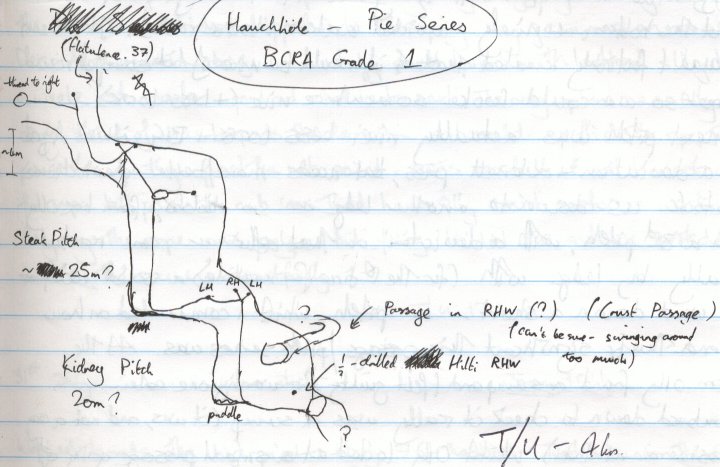 Hauchhöle - Pie Series
BCRA Grade 1
(flatulence. 37)
to right
~6m
Steak Pitch
~ 25m?
LH
RH
LH
?
Passage in RHW (?) (Crust Passage)
(can't be sure - swinging around
too much)
½ - drilled Hilti RHW
Kidney Pitch
20m?
puddle
?
T/U - 4hrs.